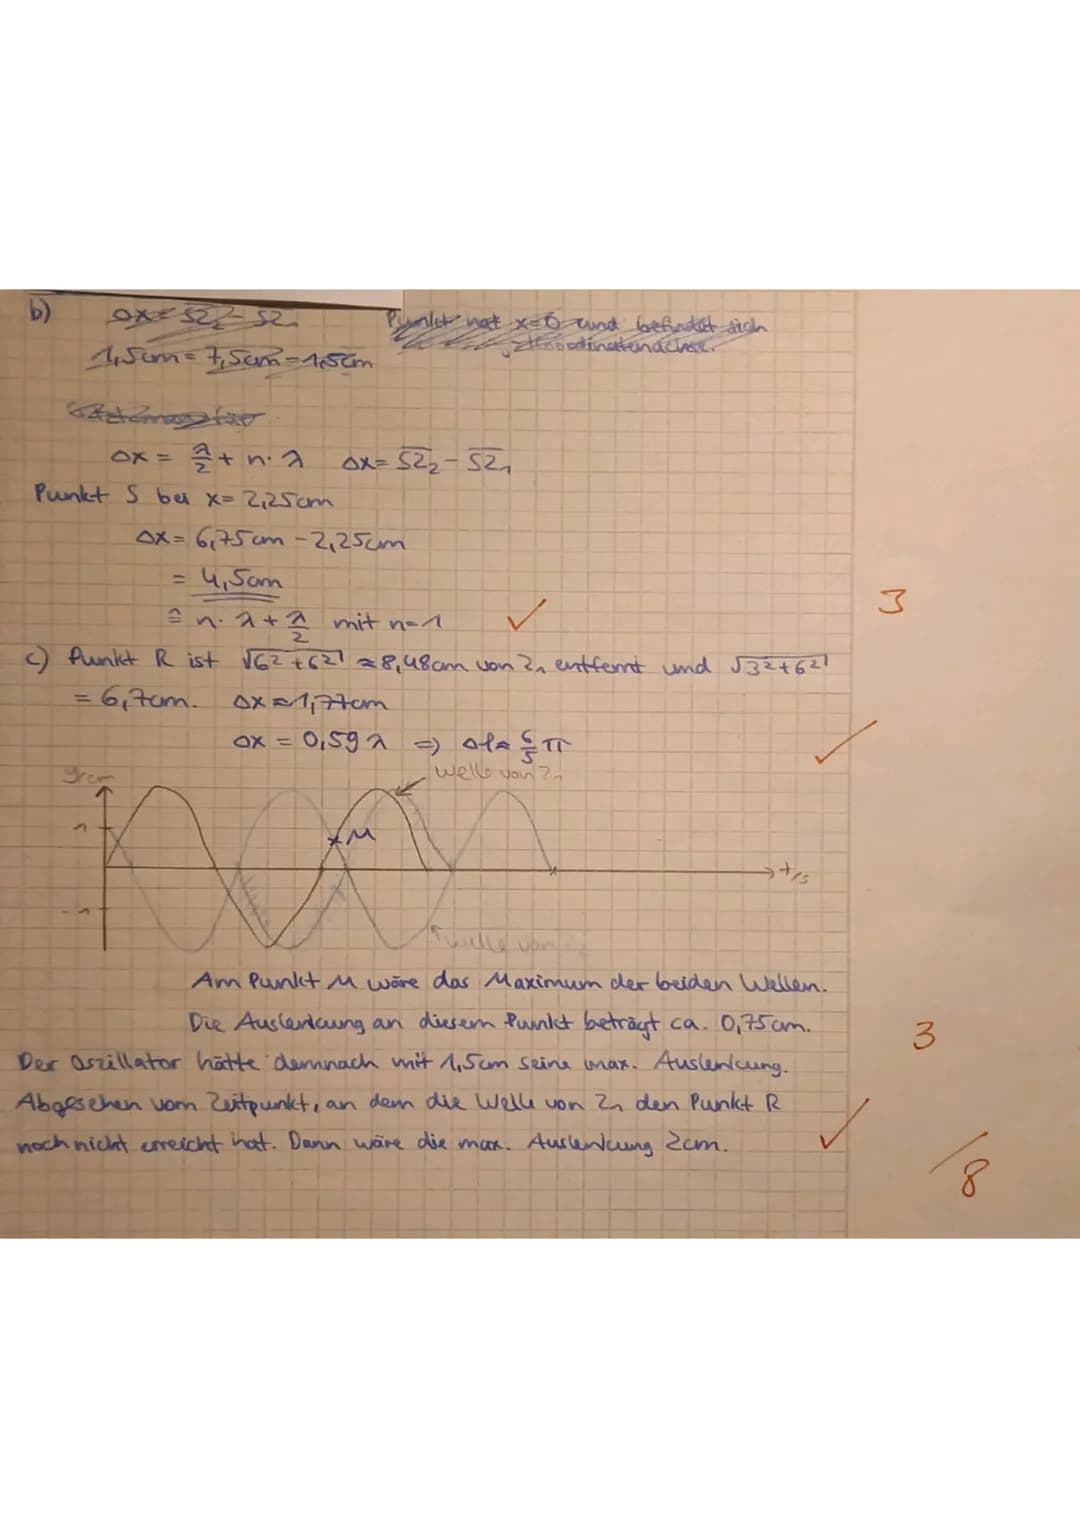 b) Δx = SZ₂ - SZ₁ Punkt hat x=0 und befindet sich
1,5cm = 7,5cm - 1,5cm Koordinatenachse.
Δx = λ/2 + n·λ Δx = SZ₂ - SZ₁
Punkt S bei x = 2,25cm
Δx = 6,75cm - 2,25cm
= 4,5cm
≙ n·λ + λ/2 mit n=1 ✓ 3
c) Punkt R ist √6²+6² ≈ 8,48cm von Z₁ entfernt und √3²+6²
= 6,7cm. Δx ≈ 1,77cm
Δx = 0,59 λ ⇒ Δφ ≈ 6/5 π ✓
y/cm Welle von Z₁
1 M
t/s
-1
Welle von
Am Punkt M wäre das Maximum der beiden Wellen.
Die Auslenkung an diesem Punkt beträgt ca. 0,75cm. 3
Der Oszillator hätte demnach mit 1,5cm seine max. Auslenkung.
Abgesehen vom Zeitpunkt, an dem die Welle von Z₁ den Punkt R
noch nicht erreicht hat. Dann wäre die max. Auslenkung 2cm. ✓
/8